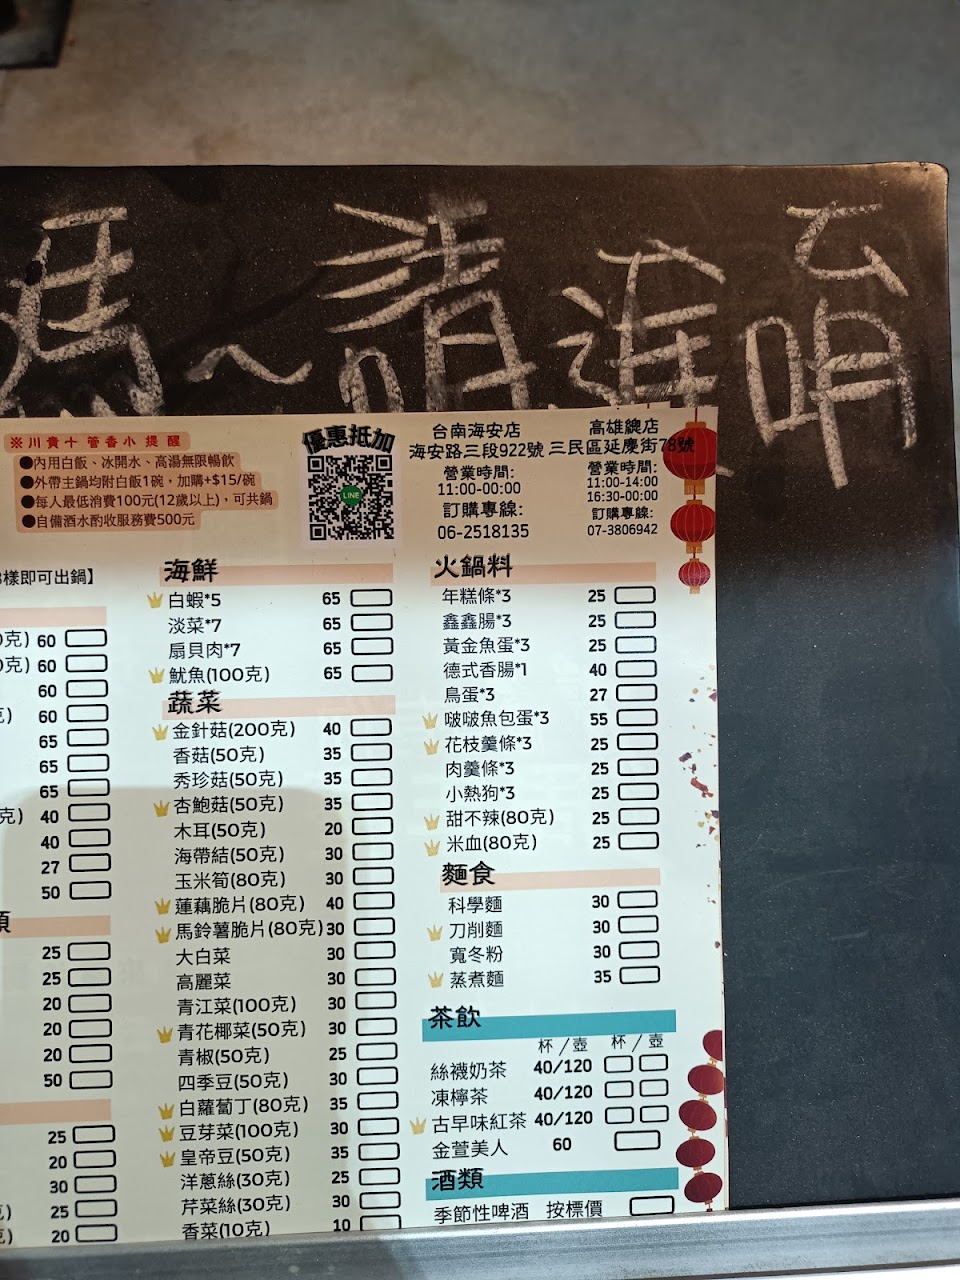 媽~請進 云
哨
※川貴十 管香小提醒
●內用白飯、冰開水、高湯無限暢飲
●外帶主鍋均附白飯1碗，加購+$15/碗
●每人最低消費100元(12歲以上)，可共鍋
●自備酒水酌收服務費500元
優惠抵加
LINE
台南海安店
海安路三段922號
營業時間:
11:00-00:00
訂購專線:
06-2518135
高雄總店
三民區延慶街78號
營業時間:
11:00-14:00
16:30-00:00
訂購專線:
07-3806942
樣即可出鍋】
0克) 60
0克) 60
60
) 60
65
65
65
克) 40
40
27
50
類
25
25
20
20
20
50
25
20
30
克) 25
克) 20
海鮮
白蝦*5 65
淡菜*7 65
扇貝肉*7 65
魷魚(100克) 65
蔬菜
金針菇(200克) 40
香菇(50克) 35
秀珍菇(50克) 35
杏鮑菇(50克) 35
木耳(50克) 20
海帶結(50克) 30
玉米筍(80克) 30
蓮藕脆片(80克) 40
馬鈴薯脆片(80克) 30
大白菜 30
高麗菜 30
青江菜(100克) 30
青花椰菜(50克) 30
青椒(50克) 25
四季豆(50克) 30
白蘿蔔丁(80克) 35
豆芽菜(100克) 30
皇帝豆(50克) 35
洋蔥絲(30克) 25
芹菜絲(30克) 30
香菜(10克) 10
火鍋料
年糕條*3 25
鑫鑫腸*3 25
黃金魚蛋*3 25
德式香腸*1 40
鳥蛋*3 27
啵啵魚包蛋*3 55
花枝羹條*3 25
肉羹條*3 25
小熱狗*3 25
甜不辣(80克) 25
米血(80克) 25
麵食
科學麵 30
刀削麵 30
寬冬粉 30
蒸煮麵 35
茶飲
杯/壺 杯/壺
絲襪奶茶 40/120
凍檸茶 40/120
古早味紅茶 40/120
金萱美人 60
酒類
季節性啤酒 按標價